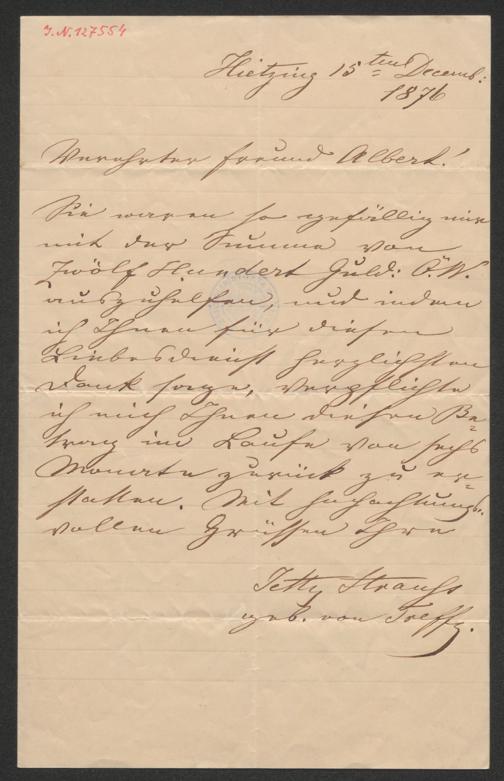 J.N. 127554
Hietzing 15ten Decemb:
1876
Verehrter Freund Albert!
Sie waren so gefällig mir
mit der Summe von
Zwölf Hundert Guld: Ö.W.
auszuhelfen, und indem
ich Ihnen für diesen
Liebesdienst herzlichsten
Dank sage, verpflichte
ich mich Ihnen diesen Be-
trag im Laufe von sechs
Monate zurück zu er-
statten. Mit hochachtungs-
vollen Grüssen Ihre
Jetty Strauss
geb. von Treffz.